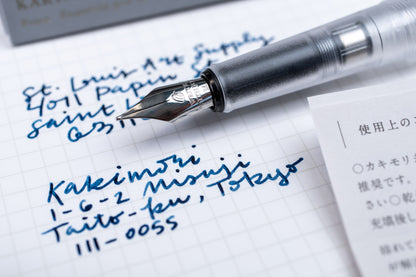 St. Louis Art Supply
4011 Papin
Saint
631
Kakimori
1-6-2 Misuji
Taito-ku, Tokyo
111-0055
使用上の
○カキモリ
推奨です。
さい○乾
充填後